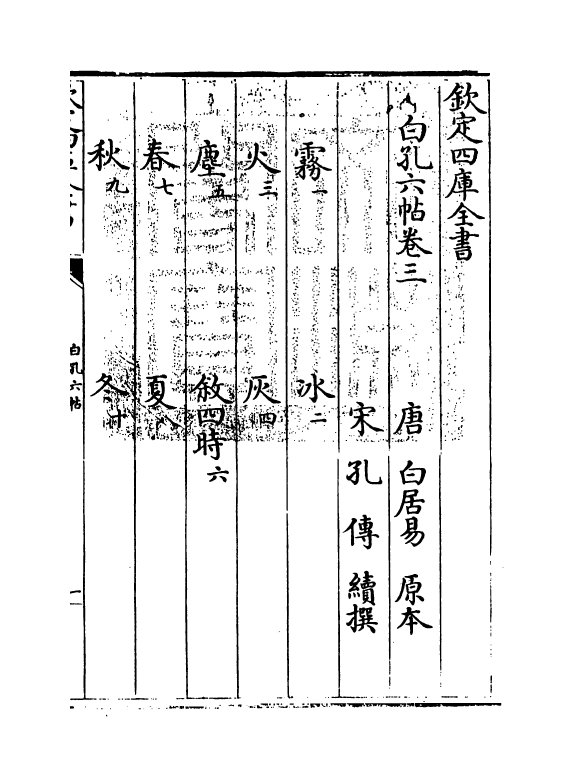 欽定四庫全書
白孔六帖卷三
唐 白居易 原本
宋 孔傳 續撰
霧一 冰二
火三 灰四
塵五 敘四時六
春七 夏八
秋九 冬十
白孔六帖
一